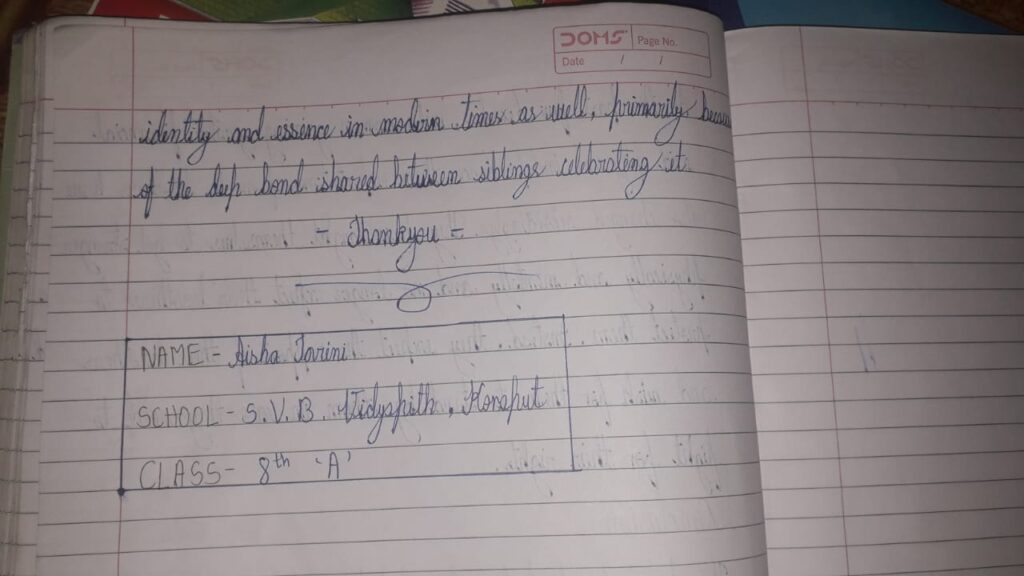 DOMS Page No.
Date / /
identity and essence in modern times as well, primarily becau
of the deep bond shared between siblings celebrating it.
- Thankyou -
NAME - Aisha Tarini
SCHOOL - S.V.B. Vidyapith, Koraput
CLASS - 8th 'A'